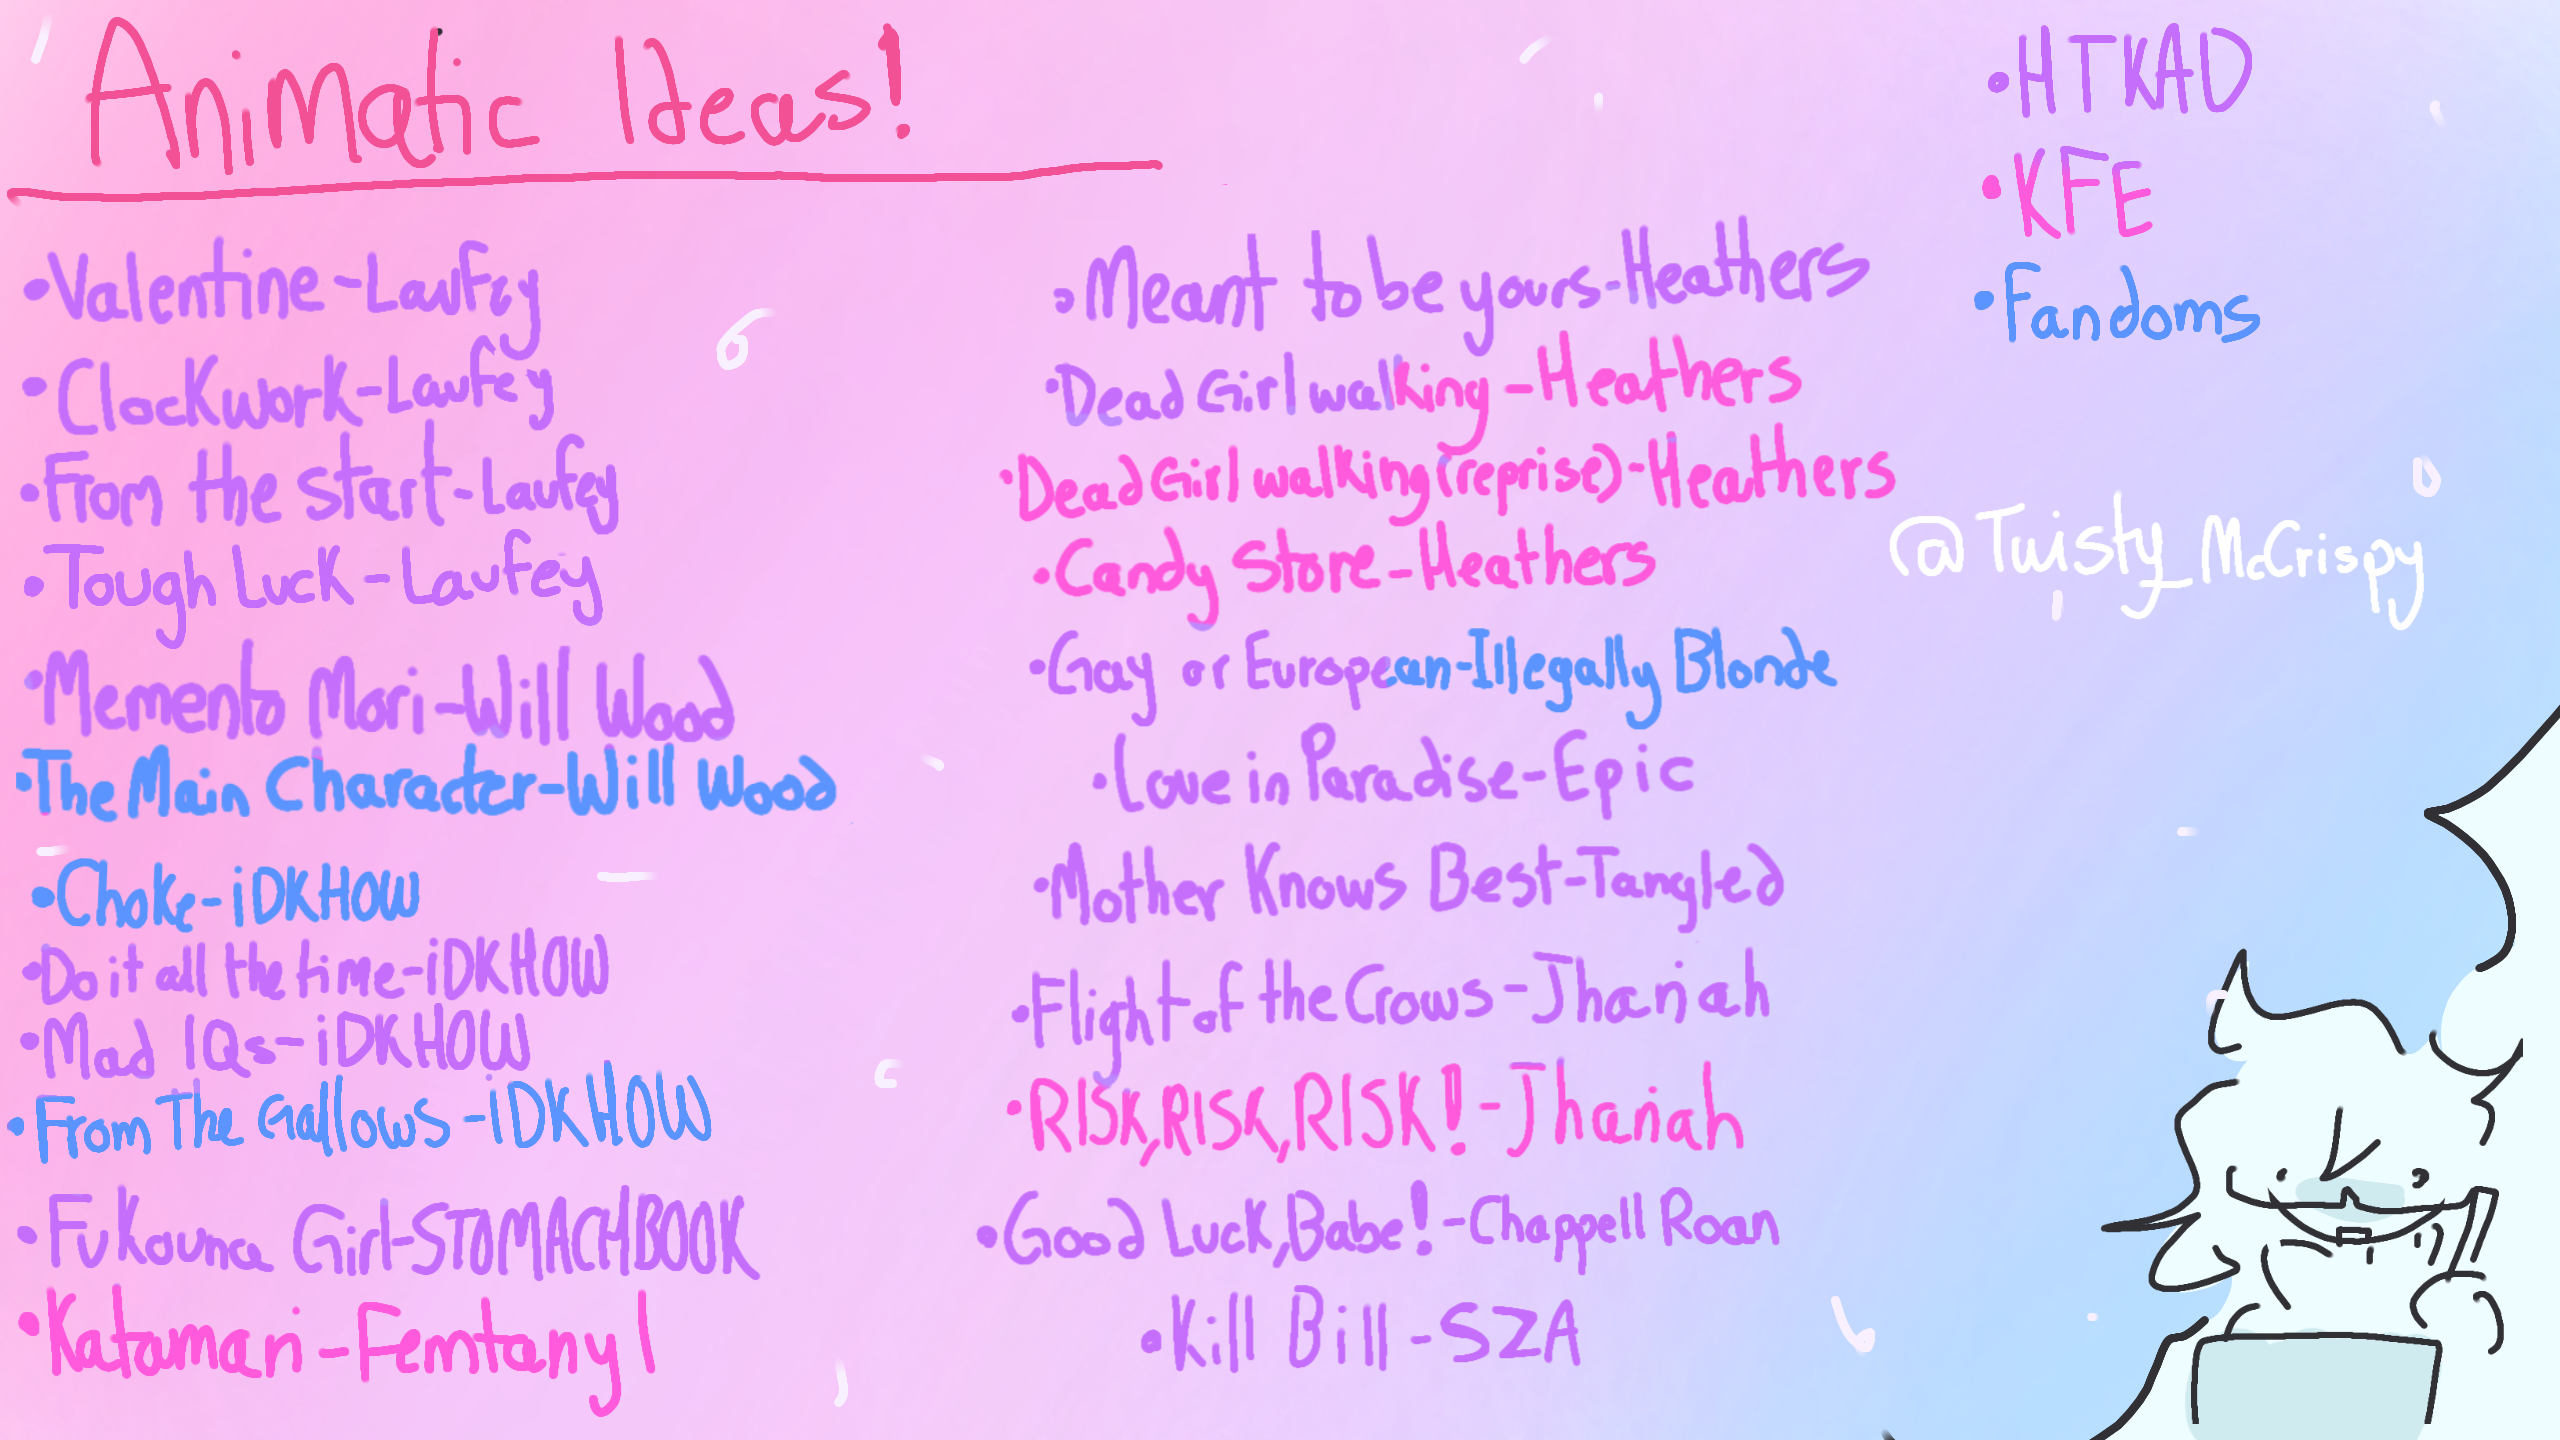 Animatic Ideas!
•Valentine-Laufey
•Clockwork-Laufey
•From the start-Laufey
•Tough Luck-Laufey
•Memento Mori-Will Wood
•The Main Character-Will Wood
•Choke-iDKHOW
•Do it all the time-iDKHOW
•Mad IQs-iDKHOW
•From The Gallows-iDKHOW
•Fukouna Girl-STOMACHBOOK
•Katamari-Femtanyl
•Meant to be yours-Heathers
•Dead Girl walking-Heathers
•Dead Girl walking(reprise)-Heathers
•Candy Store-Heathers
•Gay or European-Illegally Blonde
•Love in Paradise-Epic
•Mother Knows Best-Tangled
•Flight of the Crows-Jhariah
•RISK,RISK,RISK!-Jhariah
•Good Luck,Babe!-Chappell Roan
•Kill Bill-SZA
•HTKAD
•KFE
•Fandoms
@Twisty_McCrispy